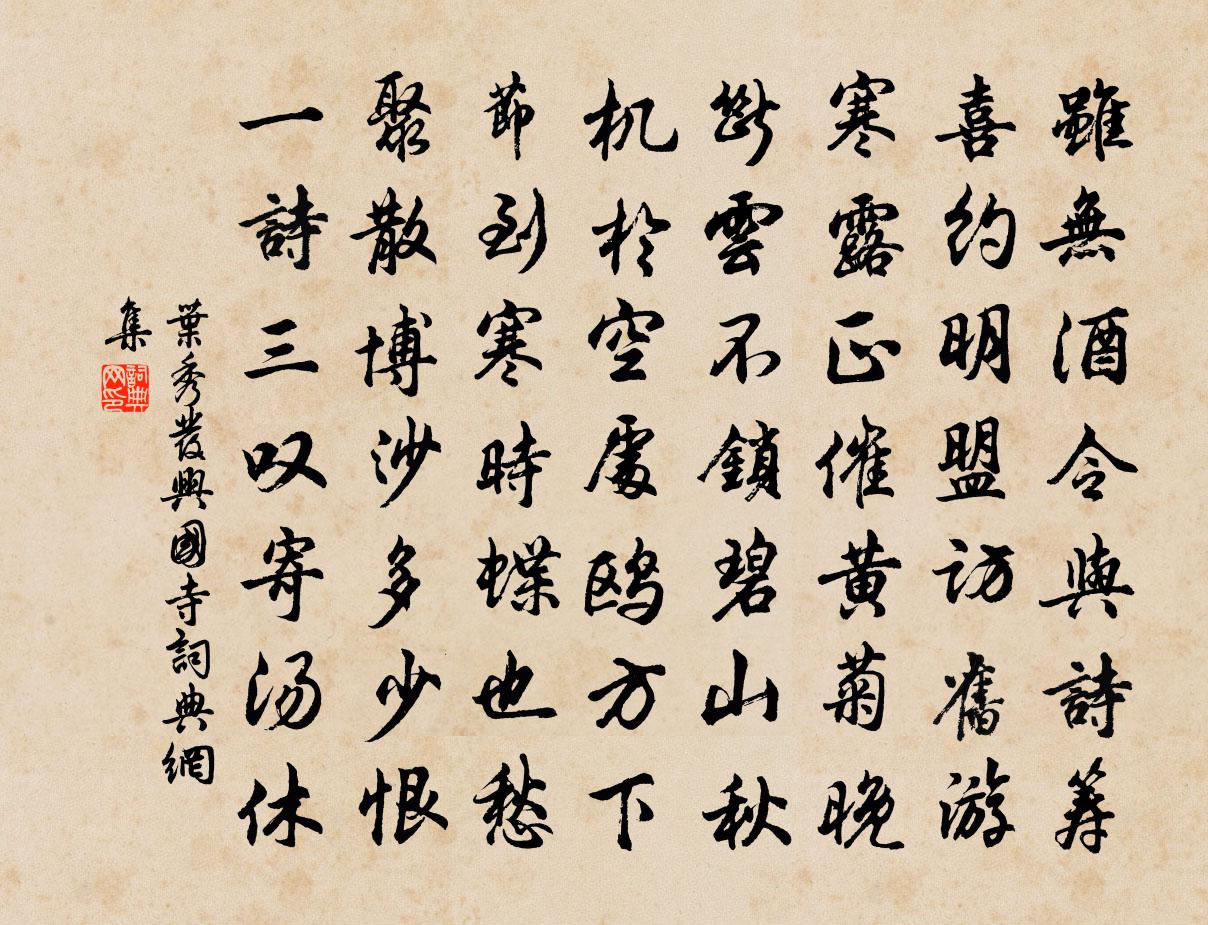 雖無酒令與詩筹
喜約明盟訪舊游
寒露正催黄菊晚
斷雲不鎖碧山秋
机於空處鷗方下
節到寒時蝶也愁
聚散博沙多少恨
一詩三叹寄汤休
葉秀發興國寺詞典網
集
詞典
网印